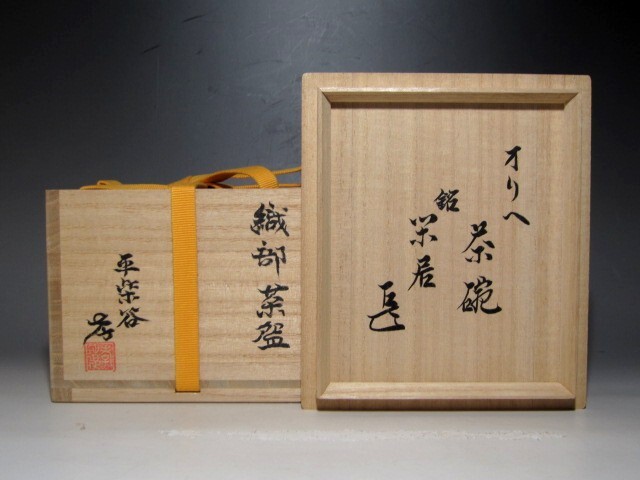 織部茶盌
平柴谷
孝
オリヘ
茶碗
銘
栄居